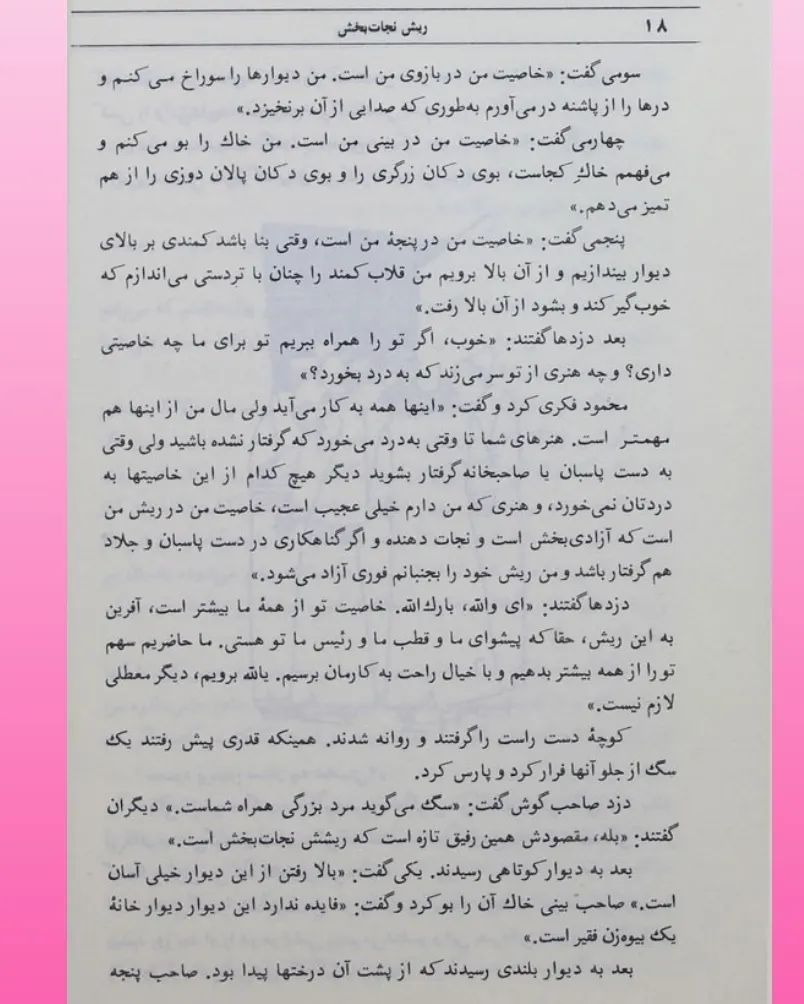 ۱۸
ریش نجات‌بخش
سومی گفت: «خاصیت من در بازوی من است. من دیوارها را سوراخ می‌کنم و
درها را از پاشنه در می‌آورم به‌طوری که صدایی از آن برنخیزد.»
چهارمی گفت: «خاصیت من در بینی من است. من خاك را بو می‌کنم و
می‌فهمم خاكِ کجاست، بوی دکان زرگری را و بوی دکان پالان دوزی را از هم
تمیز می‌دهم.»
پنجمی گفت: «خاصیت من در پنجهٔ من است، وقتی بنا باشد کمندی بر بالای
دیوار بیندازیم و از آن بالا برویم من قلاب کمند را چنان با تردستی می‌اندازم که
خوب گیر کند و بشود از آن بالا رفت.»
بعد دزدها گفتند: «خوب، اگر تو را همراه ببریم تو برای ما چه خاصیتی
داری؟ و چه هنری از تو سر می‌زند که به درد بخورد؟»
محمود فکری کرد و گفت: «اینها همه به کار می‌آید ولی مال من از اینها هم
مهمتر است. هنرهای شما تا وقتی به‌درد می‌خورد که گرفتار نشده باشید ولی وقتی
به دست پاسبان یا صاحبخانه گرفتار بشوید دیگر هیچ کدام از این خاصیتها به
دردتان نمی‌خورد، و هنری که من دارم خیلی عجیب است، خاصیت من در ریش من
است که آزادی‌بخش است و نجات دهنده و اگر گناهکاری در دست پاسبان و جلاد
هم گرفتار باشد و من ریش خود را بجنبانم فوری آزاد می‌شود.»
دزدها گفتند: «ای والله، بارك‌الله. خاصیت تو از همهٔ ما بیشتر است، آفرین
به این ریش، حقا که پیشوای ما و قطب ما و رئیس ما تو هستی. ما حاضریم سهم
تو را از همه بیشتر بدهیم و با خیال راحت به کارمان برسیم. یالله برویم، دیگر معطلی
لازم نیست.»
کوچهٔ دست راست را گرفتند و روانه شدند. همینکه قدری پیش رفتند یك
سگ از جلو آنها فرار کرد و پارس کرد.
دزد صاحب گوش گفت: «سگ می‌گوید مرد بزرگی همراه شماست.» دیگران
گفتند: «بله، مقصودش همین رفیق تازه است که ریشش نجات‌بخش است.»
بعد به دیوار کوتاهی رسیدند. یکی گفت: «بالا رفتن از این دیوار خیلی آسان
است.» صاحب بینی خاك آن را بو کرد و گفت: «فایده ندارد این دیوار دیوار خانهٔ
یك بیوه‌زن فقیر است.»
بعد به دیوار بلندی رسیدند که از پشت آن درختها پیدا بود. صاحب پنجه